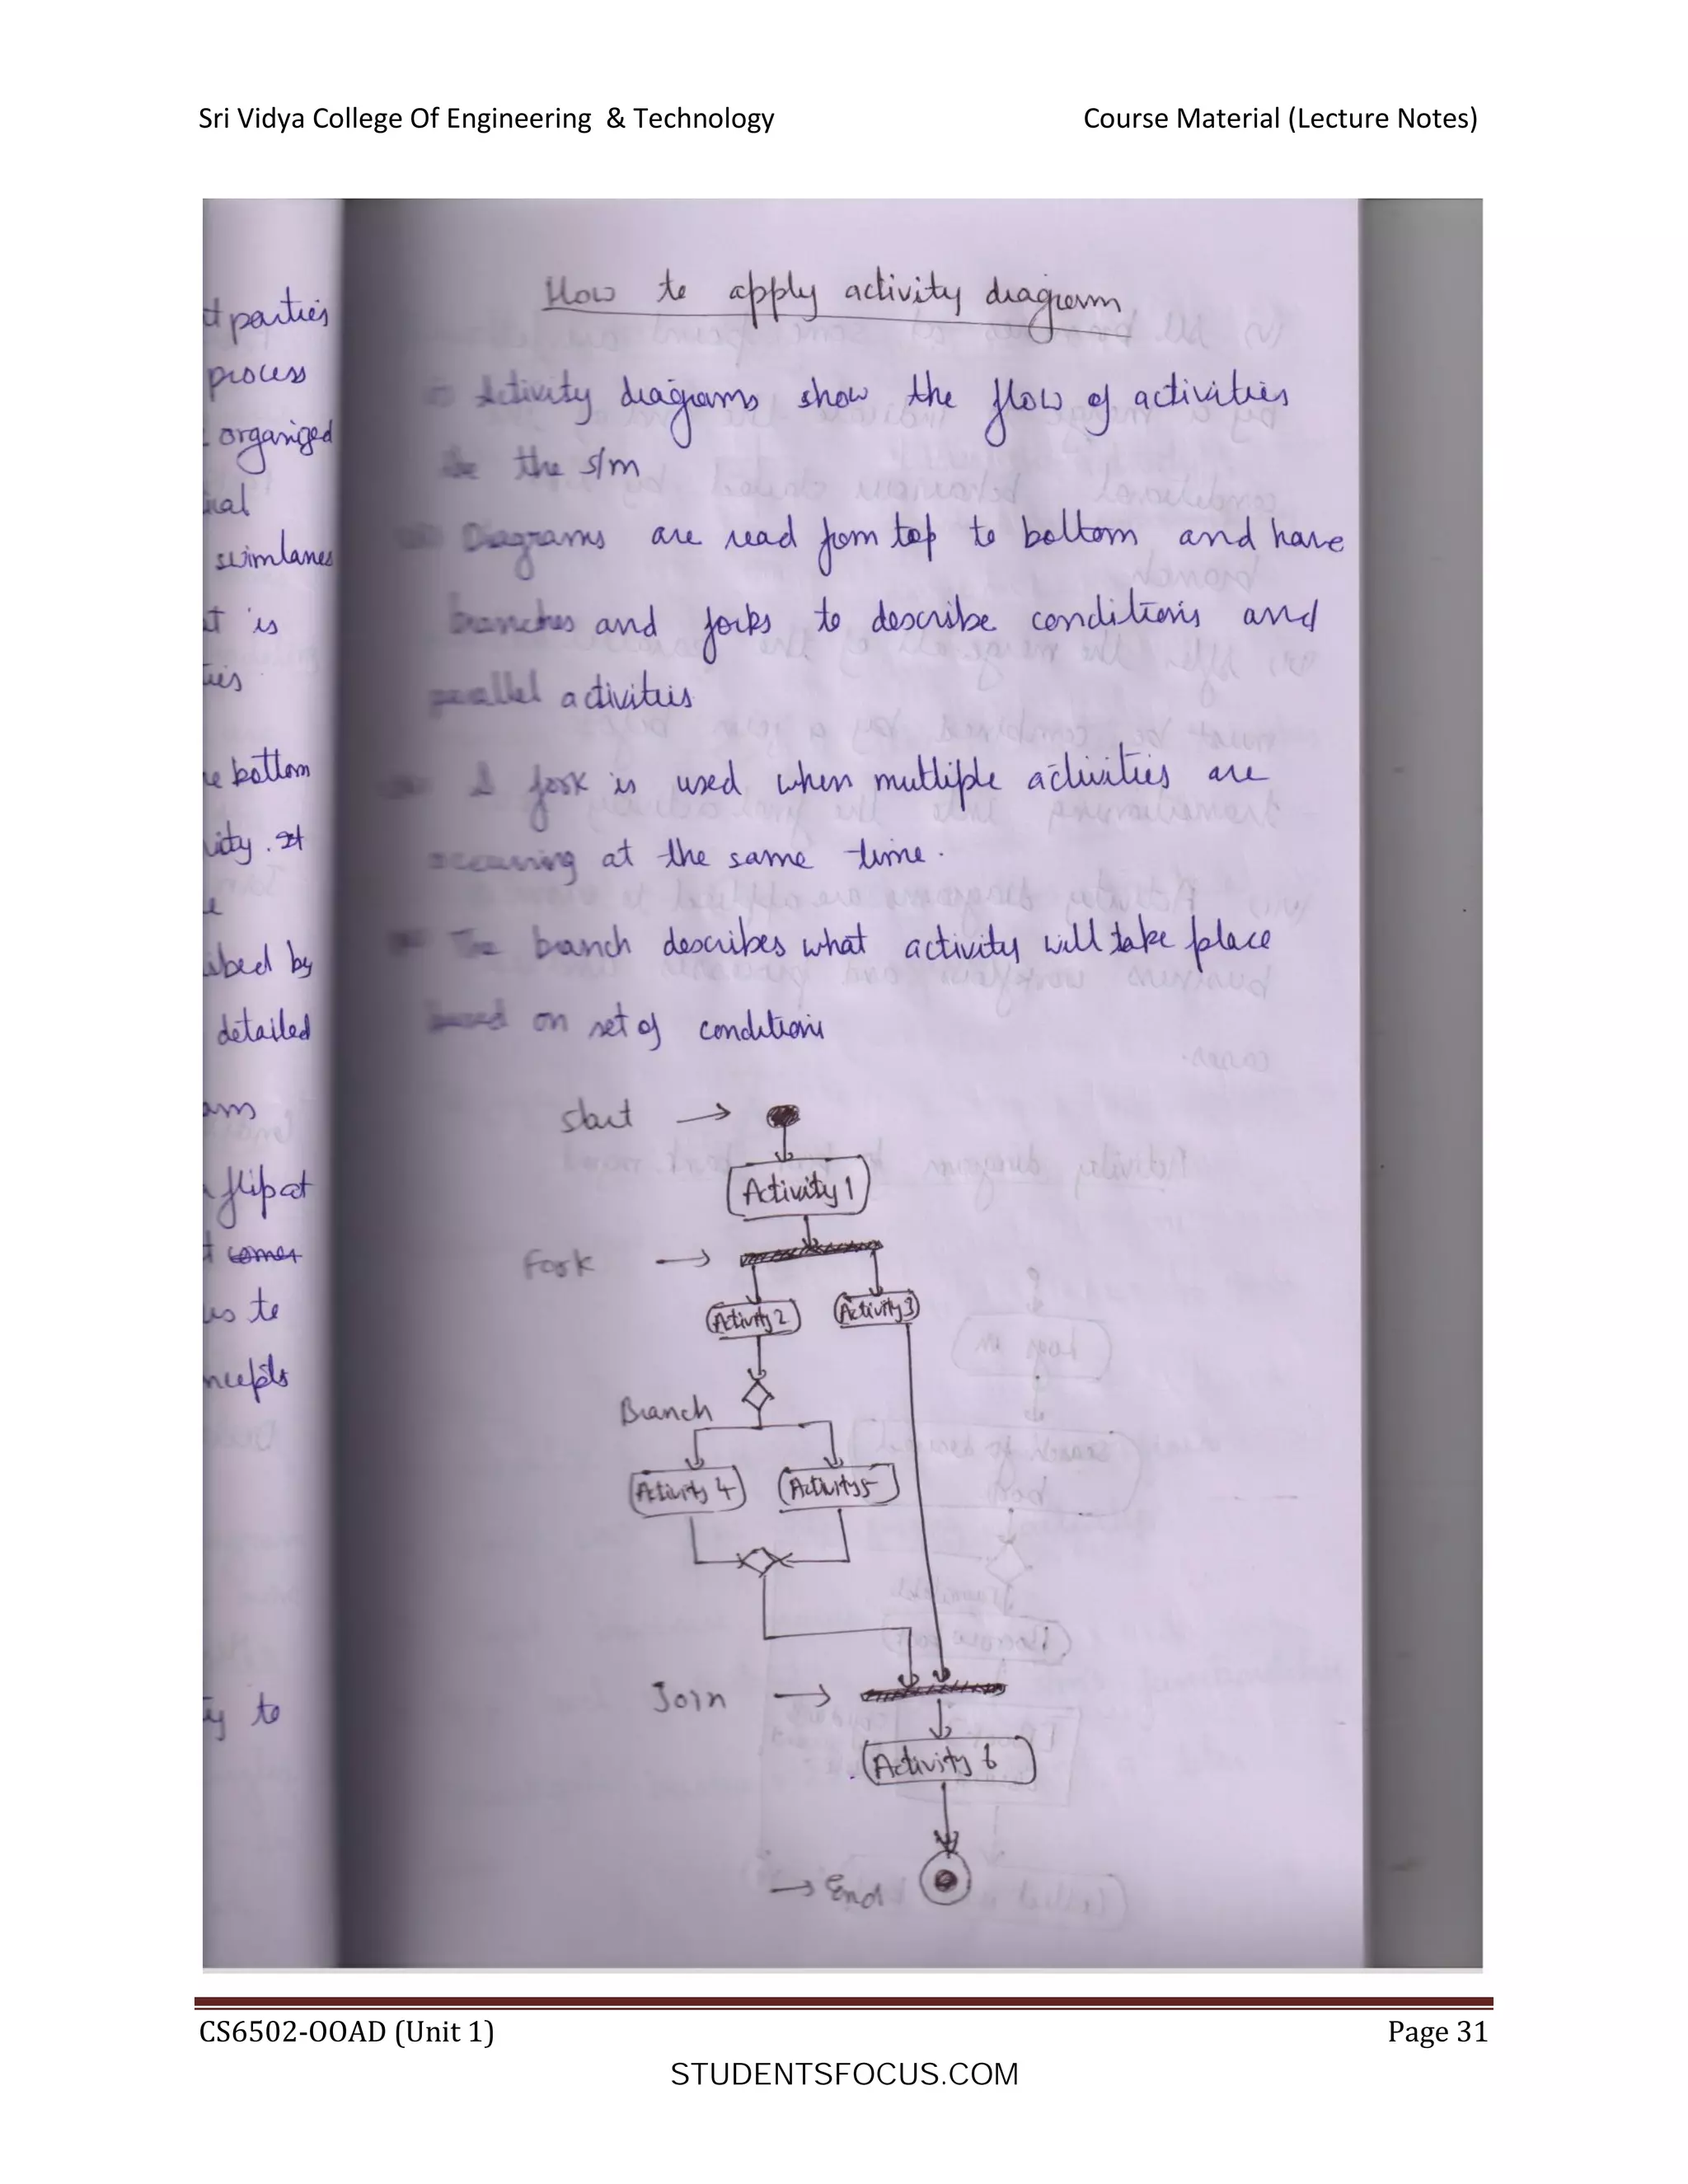 Sri Vidya College Of Engineering & Technology Course Material (Lecture Notes)
parties
process
organized
swimlanes
is
bottom
by
detailed
flip at
to
How to apply activity diagram
Activity diagrams show the flow of activities
the s/m
Diagrams are read fom top to bottom and have
branches and forks to describe conditions and
parallel activities
A fork is used when mutliple activities are
occurring at the same time.
The branch describes what activity will take place
based on set of conditions
Start →
Activity 1
Fork →
Activity 2 Activity 3
Branch
Activity 4 Activity 5
Join →
Activity 6
→ End
CS6502-OOAD (Unit 1) Page 31
STUDENTSFOCUS.COM